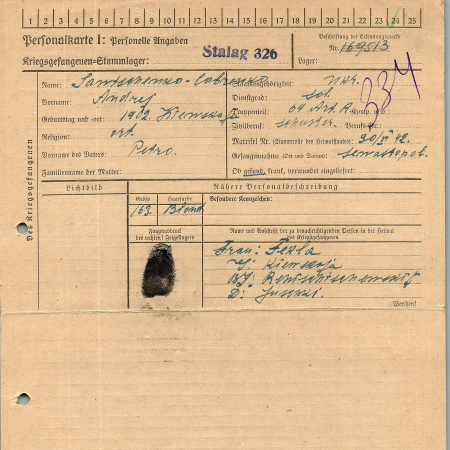 1 2 3 4 5 6 7 8 9 10 11 12 13 14 15 16 17 18 19 20 21 22 23 24 25
Personalkarte I: Personelle Angaben
Kriegsgefangenen-Stammlager: Stalag 326
Beschriftung der Erkennungsmarke
Nr. 169513
Lager:
334
Des Kriegsgefangenen
Name:
Staatsangehörigkeit: Ukr.
Vorname: Andrej
Dienstgrad: sol.
Geburtstag und -ort: 1902. Kiewskaja
Truppenteil: 69 Art. R. Komp. usw.:
Religion: ort.
Zivilberuf: schuster. Berufs-Gr.:
Matrikel Nr. (Stammrolle des Heimatstaates): 30/VI 42.
Vorname des Vaters: Petro.
Gefangennahme (Ort und Datum): Sewastopol.
Familienname der Mutter:
Ob gesund, krank, verwundet eingeliefert:
Lichtbild
Nähere Personalbeschreibung
Größe Haarfarbe Besondere Kennzeichen:
163. Blond
Fingerabdruck
des rechten! Zeigefingers
Name und Anschrift der zu benachrichtigenden Person in der Heimat
des Kriegsgefangenen
Frau: Fekla
Kiewskaja
D:
Wenden!